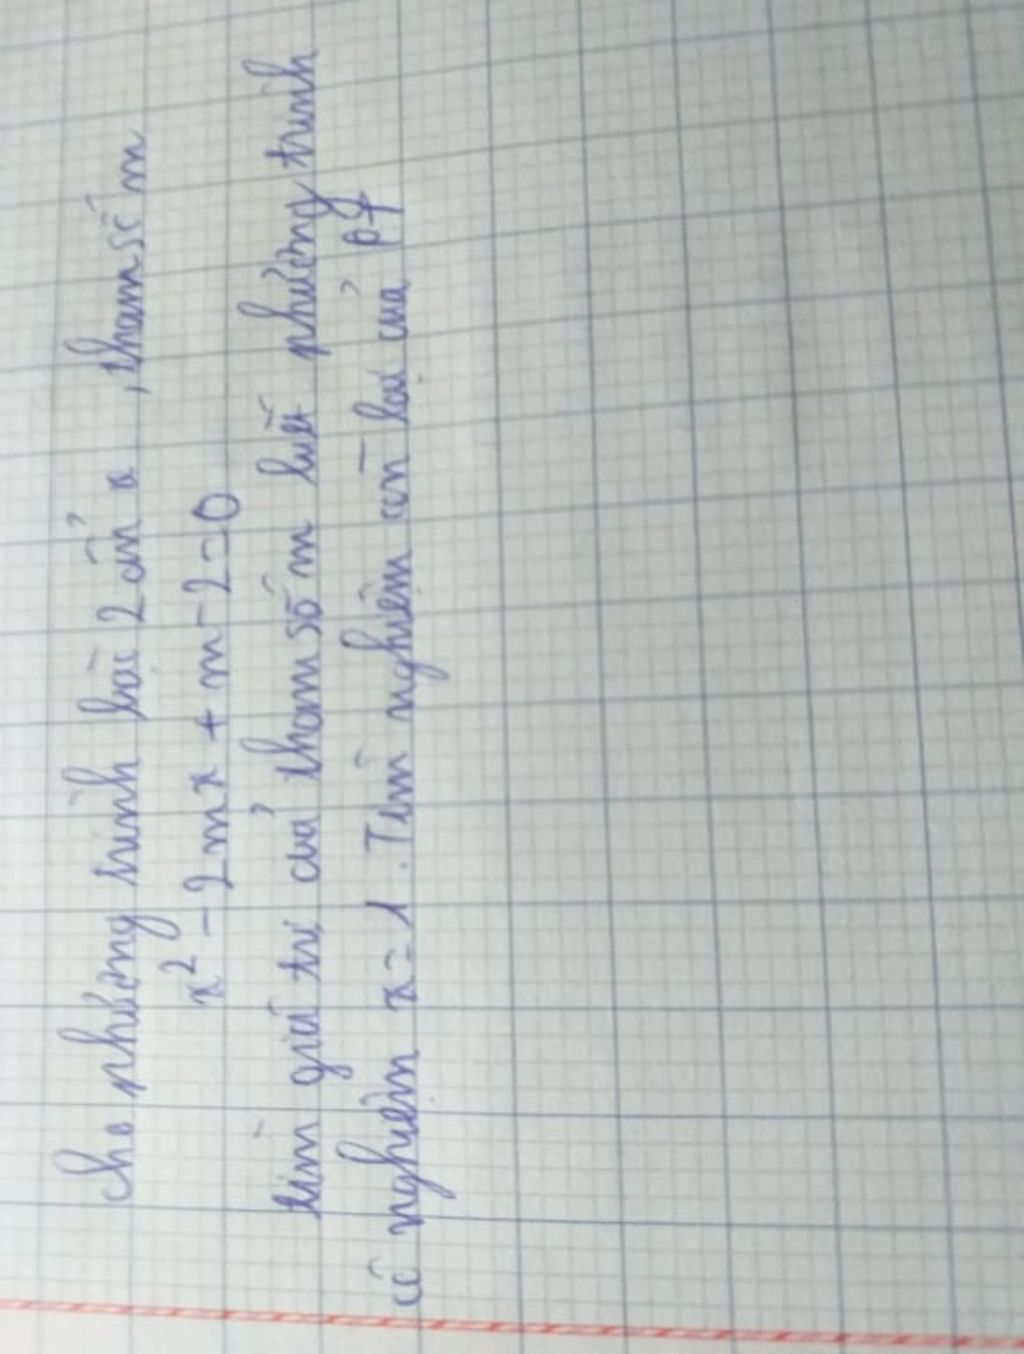 cho phương trình bậc 2 ẩn x, tham số m
x² - 2mx + m - 2 = 0
tìm giá trị của tham số m biết phương trình
có nghiệm x = 1. Tìm nghiệm còn lại của pt